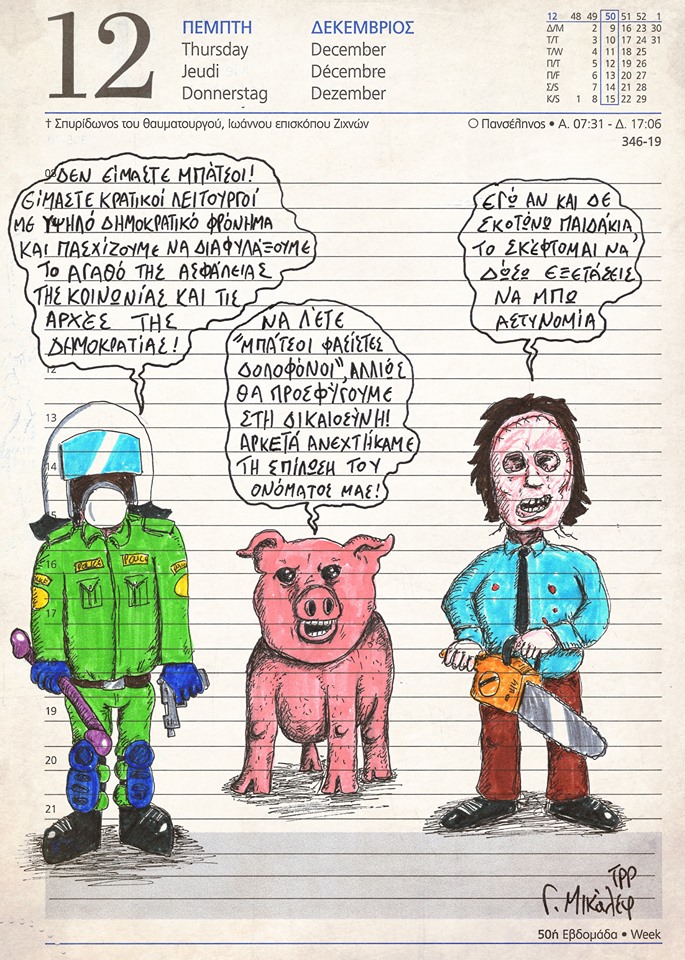 12
ΠΕΜΠΤΗ ΔΕΚΕΜΒΡΙΟΣ
Thursday December
Jeudi Décembre
Donnerstag Dezember
12 48 49 50 51 52 1
Δ/M 2 9 16 23 30
Τ/T 3 10 17 24 31
Τ/W 4 11 18 25
Π/T 5 12 19 26
Π/F 6 13 20 27
Σ/S 7 14 21 28
Κ/S 1 8 15 22 29
† Σπυρίδωνος του θαυματουργού, Ιωάννου επισκόπου Ζιχνών
Πανσέληνος • Α. 07:31 - Δ. 17:06
346-19
ΔΕΝ ΕΙΜΑΣΤΕ ΜΠΑΤΣΟΙ!
ΕΙΜΑΣΤΕ ΚΡΑΤΙΚΟΙ ΛΕΙΤΟΥΡΓΟΙ
ΜΕ ΥΨΗΛΟ ΔΗΜΟΚΡΑΤΙΚΟ ΦΡΟΝΗΜΑ
ΚΑΙ ΠΑΣΧΙΖΟΥΜΕ ΝΑ ΔΙΑΦΥΛΑΞΟΥΜΕ
ΤΟ ΑΓΑΘΟ ΤΗΣ ΑΣΦΑΛΕΙΑΣ
ΤΗΣ ΚΟΙΝΩΝΙΑΣ ΚΑΙ ΤΙΣ
ΑΡΧΕΣ ΤΗΣ
ΔΗΜΟΚΡΑΤΙΑΣ!
ΝΑ ΛΕΤΕ
"ΜΠΑΤΣΟΙ ΦΑΣΙΣΤΕΣ
ΔΟΛΟΦΟΝΟΙ", ΑΛΛΙΩΣ
ΘΑ ΠΡΟΣΦΥΓΟΥΜΕ
ΣΤΗ ΔΙΚΑΙΟΣΥΝΗ!
ΑΡΚΕΤΑ ΑΝΕΧΤΗΚΑΜΕ
ΤΗ ΣΠΙΛΩΣΗ ΤΟΥ
ΟΝΟΜΑΤΟΣ ΜΑΣ!
ΕΓΩ ΑΝ ΚΑΙ ΔΕ
ΣΚΟΤΩΝΩ ΠΑΙΔΑΚΙΑ,
ΤΟ ΣΚΕΦΤΟΜΑΙ ΝΑ
ΔΩΣΩ ΕΞΕΤΑΣΕΙΣ
ΝΑ ΜΠΩ
ΑΣΤΥΝΟΜΙΑ
12
13
14
15
16
17
19
20
21
POLICE POLICE
TPP
Γ. Μικάλεφ
50ή Εβδομάδα • Week